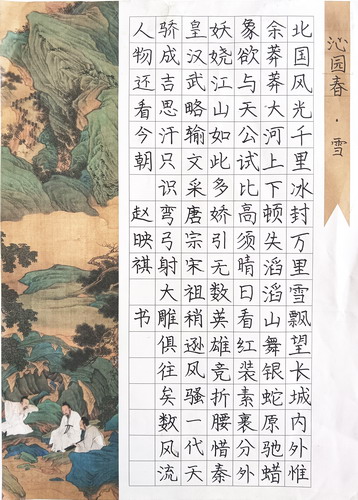 沁园春·雪
北国风光千里冰封万里雪飘望长城内外惟
余莽莽大河上下顿失滔滔山舞银蛇原驰蜡
象欲与天公试比高须晴日看红装素裹分外
妖娆江山如此多娇引无数英雄竞折腰惜秦
皇汉武略输文采唐宗宋祖稍逊风骚一代天
骄成吉思汗只识弯弓射大雕俱往矣数风流
人物还看今朝 赵映祺 书